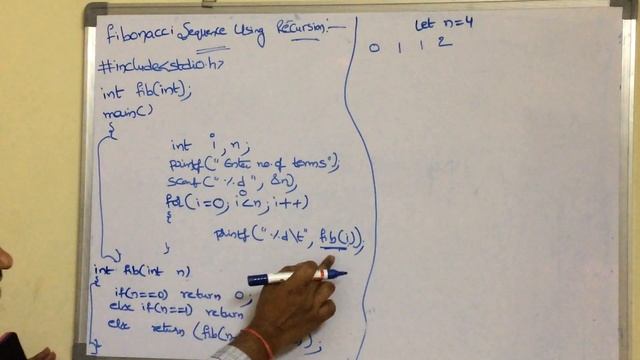 Fibonacci Sequence Using Recursion:-
#include<stdio.h>
int fib(int);
main()
{
int i, n;
printf("Enter no. of terms");
scanf("%d", &n);
for(i=0; i<n; i++)
{
printf("%d\t", fib(i));
}
}
int fib(int n)
{
if(n==0) return 0;
else if(n==1) return
else return (fib(n
}
Let n=4
0 1 1 2